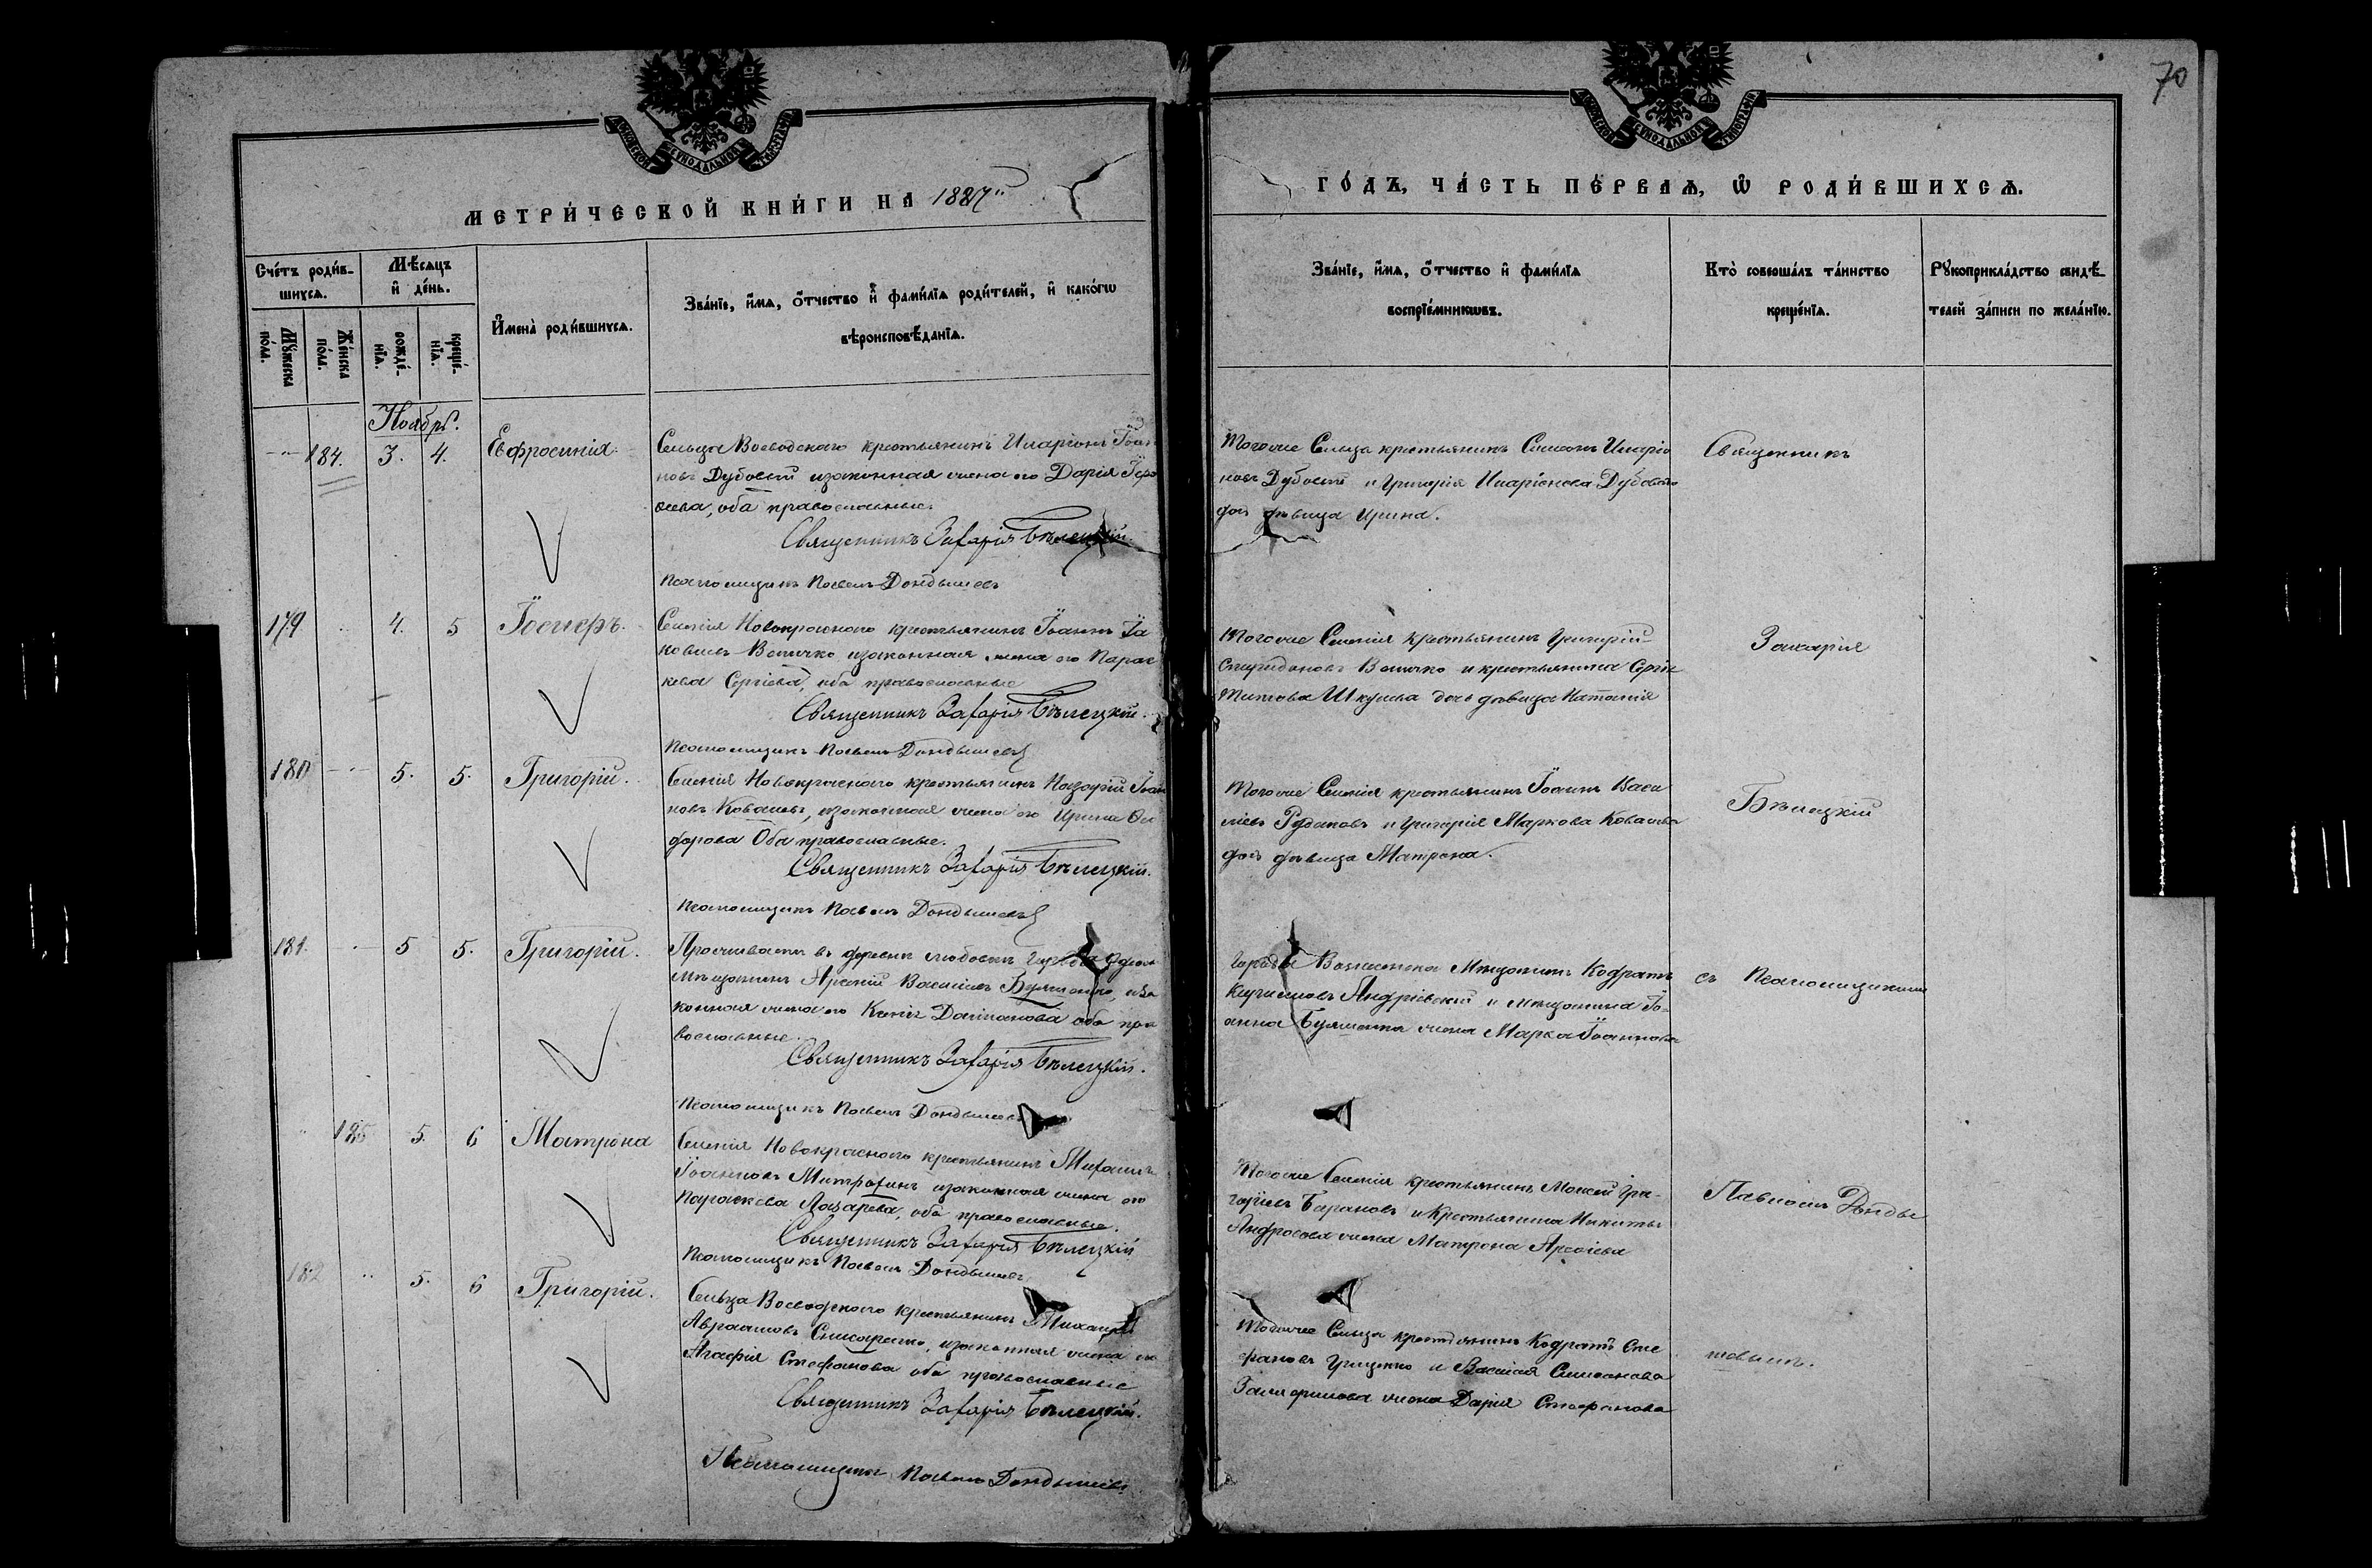 70
МОСКОВСКОЙ СѴНОДАЛЬНОЙ ТИПОГРАФІИ
МОСКОВСКОЙ СѴНОДАЛЬНОЙ ТИПОГРАФІИ
МЕТРИ́ЧЕСКОЙ КНИ́ГИ НА 1887
ГО́ДЪ, ЧА́СТЬ ПЕ́РВАѦ, Ѽ РОДИ́ВШИХСѦ.
Сче́тъ роди́в-
шихсѧ.
Мꙋ́жеска
по́ла.
Же́нска
по́ла.
Мѣ́сѧцъ
и҆ де́нь.
рожде́-
нїѧ.
креще́-
нїѧ.
И҆мена̀ роди́вшихсѧ.
Зва́нїе, и҆́мѧ, ѻ҆́тчество и҆ фамѝлїѧ роди́телей, и҆ како́гѡ
вѣроисповѣ́данїѧ.
Зва́нїе, и҆́мѧ, ѻ҆́тчество и҆ фамѝлїѧ
воспрїе́мникѡвъ.
Кто̀ соверша́лъ та́инство
креще́нїѧ.
Рꙋкоприкла́дство свидѣ́-
телей за́писи по жела́нїю.
Ноябрь.
184. 3. 4. Ефросинія
Сельца Воеводскаго крестьянинъ Иларіонъ Іоан
новъ Дубовый изаконная жена его Дарія
оба православные.
Священникъ Захарія Бѣлецкій
Псаломщикъ Павелъ Дондышевъ
Тогоже Сельца крестьянинъ Симеонъ Иларіо
новъ Дубовый и Григорія Иларіонова Дубоваго
дочь дѣвица Ирина.
Священникъ
179 4. 5 Іосифъ.
Селенія Новокраснаго крестьянинъ Іоаннъ Іа
ковлевъ Величко изаконная жена его Парас
кева Сергіева, оба православные
Священникъ Захарія Бѣлецкій.
Псаломщикъ Павелъ Дондышевъ
Тогоже Селенія крестьянинъ Григорій
Спиридоновъ Величко и крестьянина Сергія
Титова дочь дѣвица Наталія
Захарія
180 5. 5. Григорій.
Селенія Новокраснаго крестьянинъ Назарій Іоан
новъ Ковалевъ, изаконная жена его Ирина Ѳе
дорова Оба православные.
Священникъ Захарія Бѣлецкій.
Псаломщикъ Павелъ Дондышевъ
Тогоже Селенія крестьянинъ Іоаннъ Васи
ліевъ Рудаковъ и Григорія Маркова Ковалева
дочь дѣвица Матрона.
Бѣлецкій
181. 5 5. Григорій.
Проживаетъ въ деревнѣ города
Мѣщанинъ Арсеній Василіевъ иза
конная жена его оба пра
вославные.
Священникъ Захарія Бѣлецкій.
Псаломщикъ Павелъ Дондышевъ
Города Вознесенска Мѣщанинъ Кодратъ
Кирилловъ Андріевскій и мѣщанина Іо-
анна жена Марѳа Іоаннова
съ Псаломщикомъ
185 5. 6 Матрона
Селенія Новокраснаго крестьянинъ Михаилъ
Іоанновъ Митрофанъ изаконная жена его
Параскева Лазарева, оба православные.
Священникъ Захарія Бѣлецкій
Псаломщикъ Павелъ Дондышевъ
Тогоже Селенія крестьянинъ Моисей Гри-
горіевъ Барановъ и Крестьянина Никиты
жена Матрона
Павломъ Донды
182 5. 6 Григорій.
Сельца Воеводскаго крестьянинъ Михаилъ
Авраамовъ изаконная жена его
Агафія Стефанова оба православные
Священникъ Захарія Бѣлецкій.
Псаломщикъ Павелъ Дондышевъ
Тогоже Сельца крестьянинъ Кодратъ Сте
фановъ Гриценко и Василія Симеонова
жена Дарія Стефанова
шевымъ.